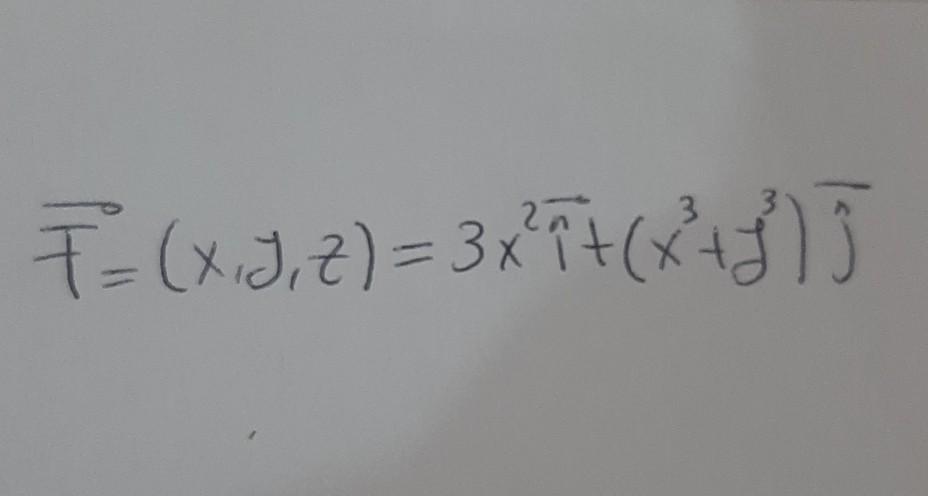 F⃗ = (x,y,z) = 3x² î + (x³+y³) ĵ